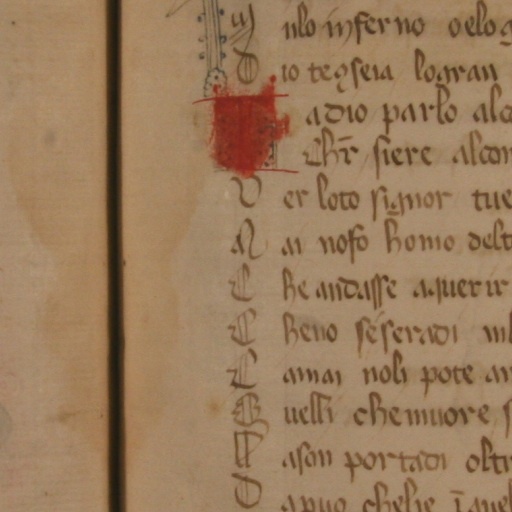 nlo inferno  o elo
D io te q seia  lo gran
adio parlo alc
Chr̄ siere alcon
V er loto signor tue
M ai no fo homo delt
C he andasse a querir
C heno seseradi  inl
C amai  noli pote an
Q uelli che muore s
P ason portadi  oltr
D apuo chelie